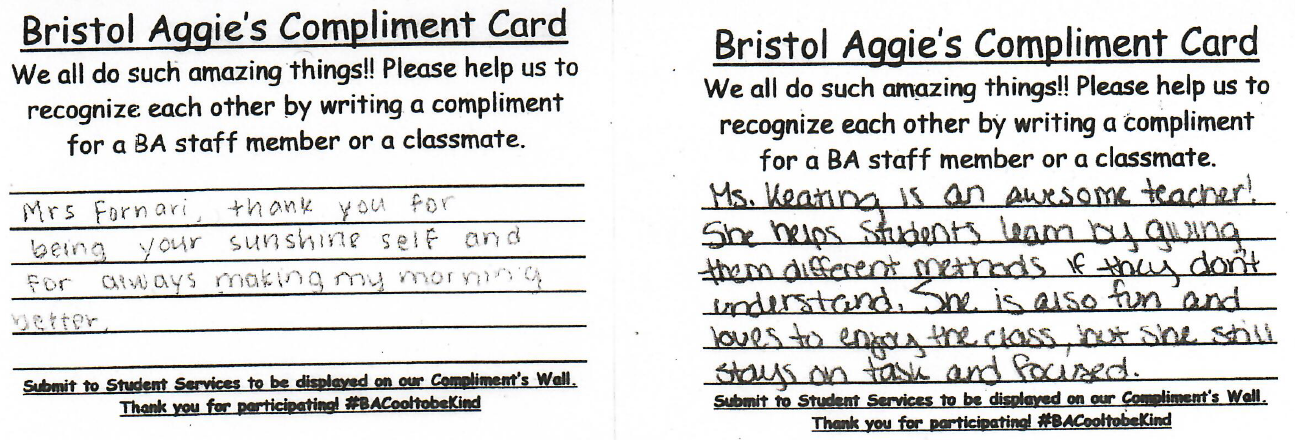 Bristol Aggie's Compliment Card
We all do such amazing things!! Please help us to
recognize each other by writing a compliment
for a BA staff member or a classmate.
Mrs Fornari, thank you for
being your sunshine self and
for always making my morning
better.
Submit to Student Services to be displayed on our Compliment's Wall.
Thank you for participating! #BACooltobeKind
Bristol Aggie's Compliment Card
We all do such amazing things!! Please help us to
recognize each other by writing a compliment
for a BA staff member or a classmate.
Ms. Keating is an awesome teacher!
She helps students learn by giving
them different methods if they don't
understand. She is also fun and
loves to enjoy the class, but she still
stays on task and focused.
Submit to Student Services to be displayed on our Compliment's Wall.
Thank you for participating! #BACooltobeKind